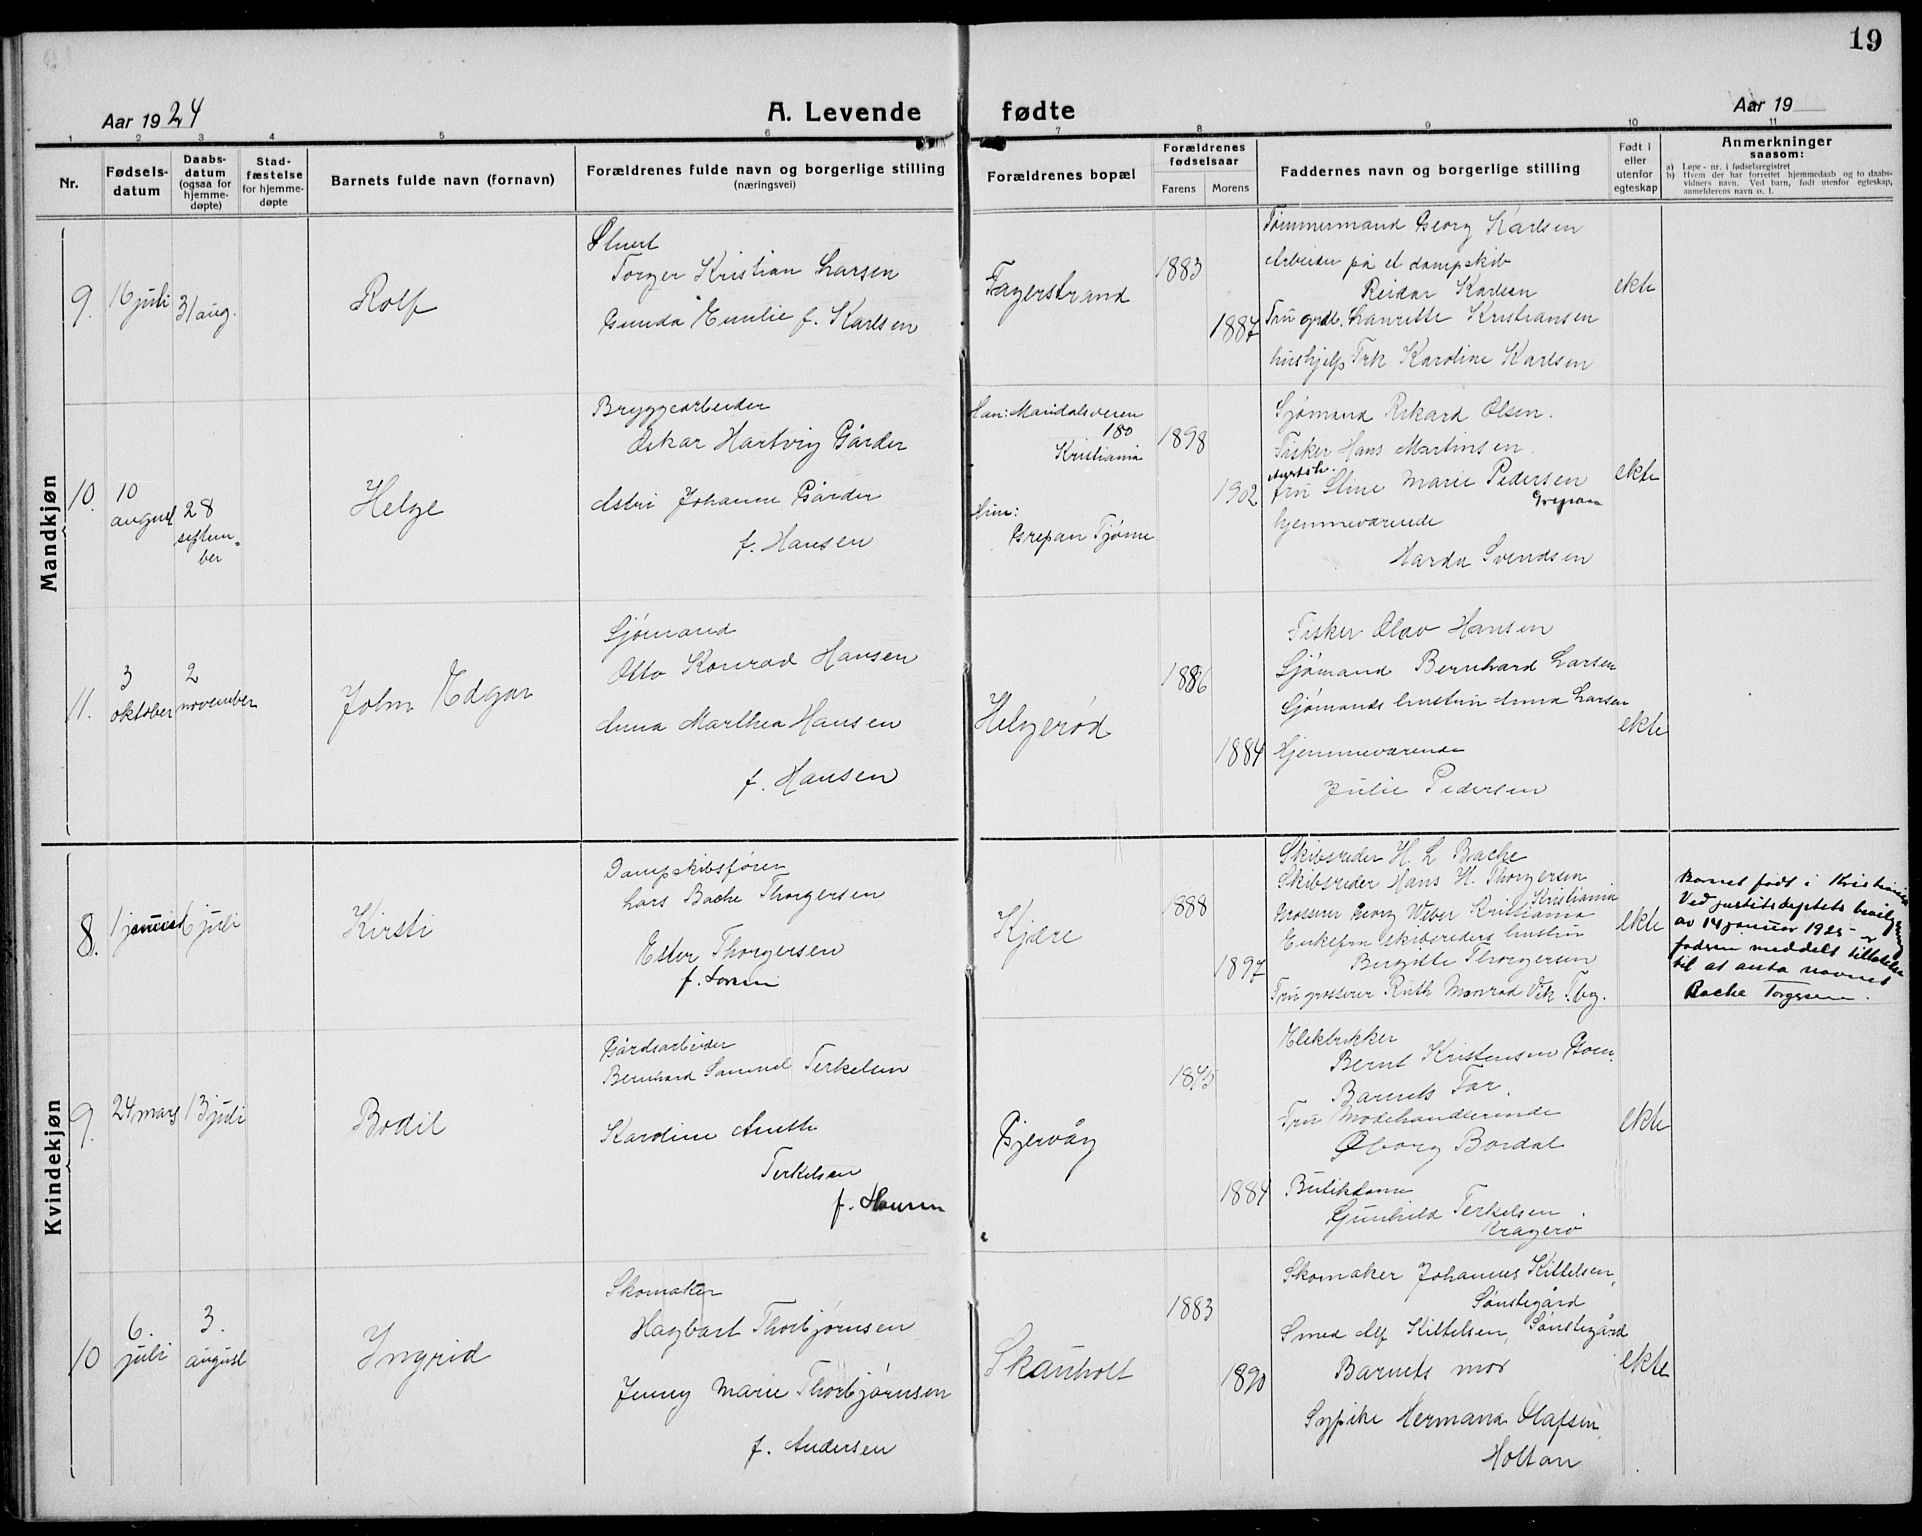 19
Aar 1924
A. Levende fødte
Aar 19
1 2 3 4 5 6 7 8 9 10 11
Nr.
Fødsels-
datum
Daabs-
datum
(ogsaa for
hjemme-
døpte)
Stad-
fæstelse
for hjemme-
døpte
Barnets fulde navn (fornavn)
Forældrenes fulde navn og borgerlige stilling
(næringsvei)
Forældrenes bopæl
Forældrenes
fødselsaar
Farens Morens
Faddernes navn og borgerlige stilling
Født i
eller
utenfor
egteskap
Anmerkninger
saasom:
a) Løpe-nr. i fødselsregistret
b) Hvem der har forrettet hjemmedaab og to daabs-
vidners navn. Ved barn, født utenfor egteskap,
anmelderens navn o. l.
Mandkjøn
9.
16 juli
31 aug.
Rolf
Torger Kristian Larsen
Gunda Emilie f. Karlsen
Fagerstrand
1883
1887
Tømmermand Georg Karlsen
Arbeider på et dampskib
Reidar Karlsen
Fru Laurette Kristiansen
hushjelp Frk Karoline Karlsen
ekte
10.
10
august
28
septem-
ber
Helge
Bryggearbeider
Oskar Hartvig Gårder
Astri Johanne Gårder
f. Hansen
Han: Mandalsveien
180
Kristiania
Hun:
Grepan Tjøme
1898
1902
Sjømand Rikard Olsen.
Fisker Hans Martinsen.
fru Stine Marie Pedersen
Grepan
hjemmeværende
Harda Svendsen
ekte
11.
3
oktober
2
november
John Edgar
Sjømand
Otto Konrad Hansen
Anna Marthea Hansen
f. Hansen
Helgerød
1886
1884
Fisker Olav Hansen
Sjømand Bernhard Larsen
Sjømands hustru Anna Larsen
Hjemmeværende
Julie Pedersen
ekte
Kvindekjøn
8.
1 januar
6 juli
Kirsti
Dampskibsfører
Lars Bache Thorgersen
Ester Thorgersen
f.
Kjære
1888
1897
Skibsreder H. L Bache
Skibsreder Hans H. Thorgersen
Kristiania
Grosserer Georg Weber Kristiania
Enkefru skibsreders hustru
Birgitte Thorgersen
Fru grosserer Ruth Monrad Vik Tbg.
ekte
Barnet født i Kristiania
Ved justitsdeptets bevilgning
av 14 januar 1925 er
faderen meddelt tillatelse
til at anta navnet
Bache Torgersen.
9.
24 mars
13 juli
Bodil
Gårdsarbeider
Bernhard Samuel Terkelsen
Karoline Anette
Terkelsen
f. Hansen
Gjervåg
1875
1884
Elektrikker
Bernt Kristensen
Barnets Far.
Fru Modehandlerinde
Øborg Bordal
Butikdame
Gunhild Terkelsen.
Kragerø
ekte
10
6.
juli
3.
august
Ingrid
Skomaker
Hagbart Thorbjørnsen
Jenny Marie Thorbjørnsen
f. Andersen
Skauholt
1883
1890
Skomaker Johannes Kittelsen,
Sønstegård
Smed Alf Kittelsen, Sønstegård
Barnets mor
Sypike Hermana Olafsen,
Holtan
ekte